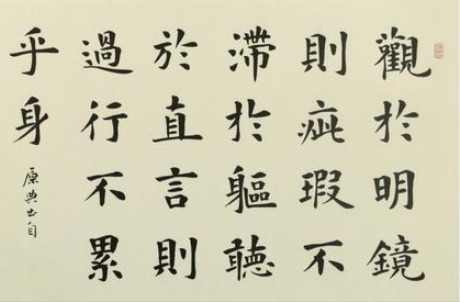 觀於明鏡
則疵瑕不
滯於軀聽
於直言則
過行不累
乎身
原典出自